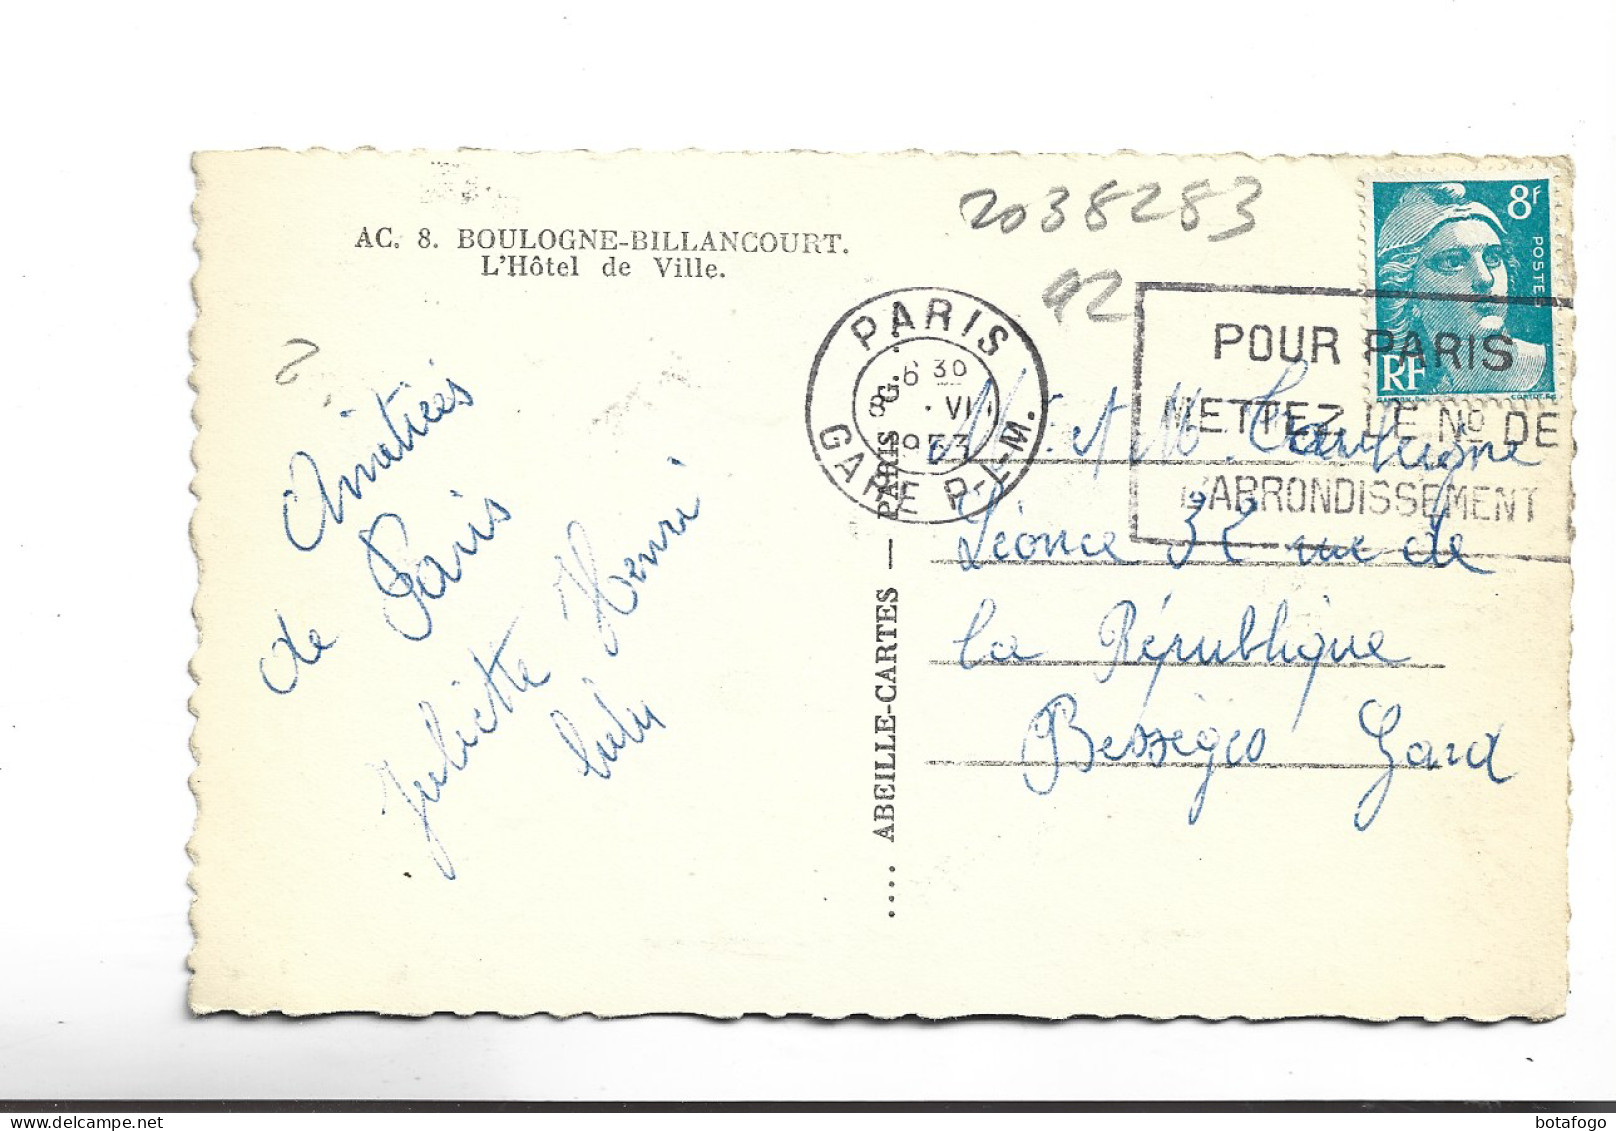 AC. 8. BOULOGNE-BILLANCOURT.
L'Hôtel de Ville.
2038283
42
8F
POSTES
RF
PARIS
6 30
8 . VI
1953
GARE P-L-M.
POUR PARIS
METTEZ LE No DE
L'ABRONDISSEMENT
Amitiés
de Paris
Juliette Henri
lulu
.... ABEILLE-CARTES — PARIS
Mr et Mme
Léonce 32 rue de
la République
Bessèges Gard
botafogo